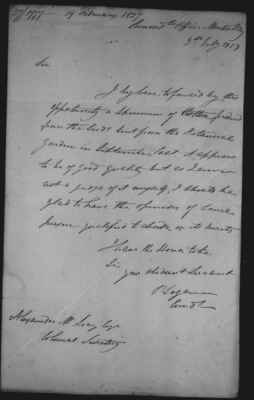 19 February 1827
Command^ts Office
Sir
I beg leave to forward by this
opportunity a specimen of Cotton produced
from the seeds sent from the Botanical
Garden in September last. It appears
to be of good quality but as I am
not a judge of it myself, I should be
glad to have the opinion of some
person qualified to decide on its merits
I have the Honor to be
Sir
your obedient Servant
P Logan
Comd^t
Alexander McLeay Esqr
Colonial Secretary